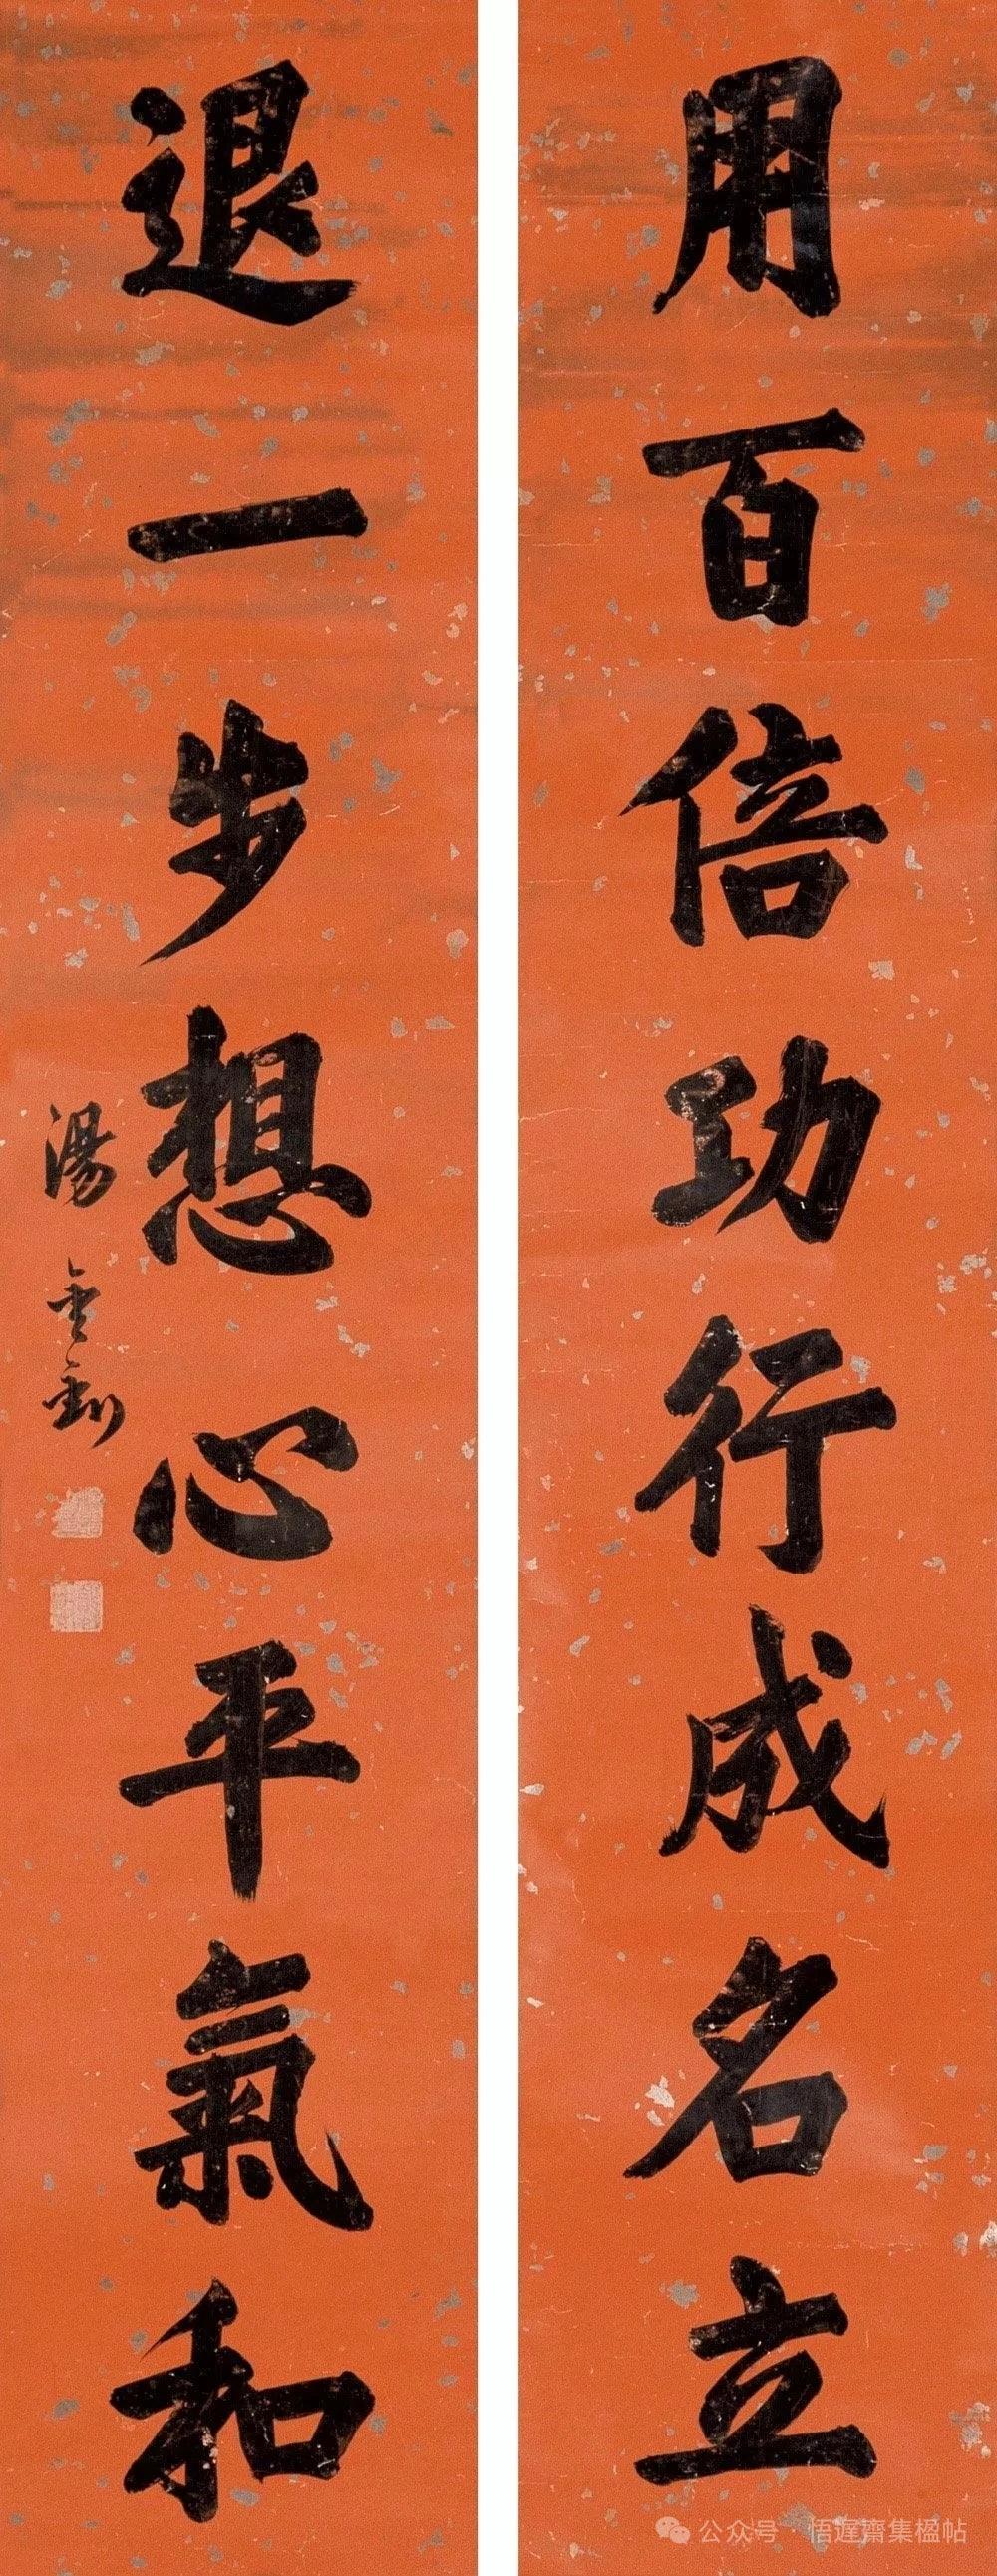 用百倍功行成名立
退一步想心平氣和
湯金釗
公众号·悟遲齋集楹帖